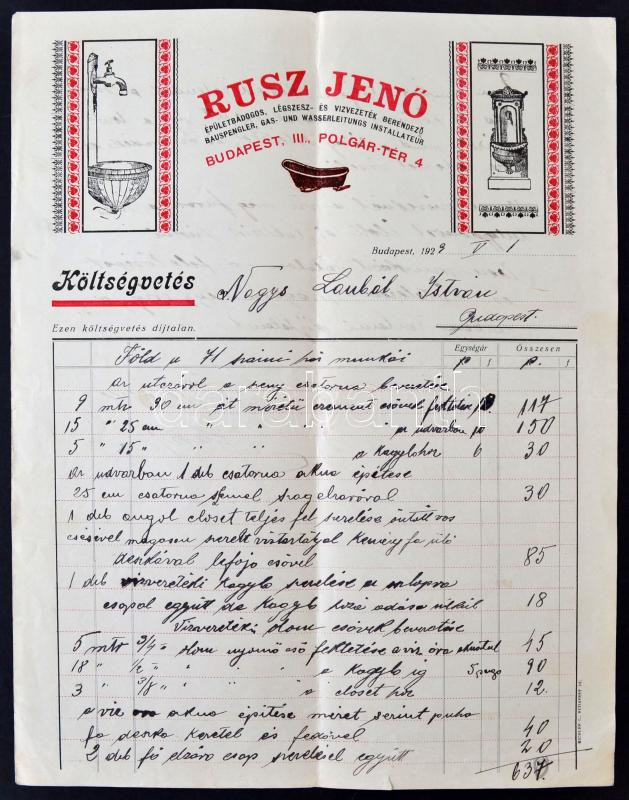 RUSZ JENŐ
ÉPÜLETBADOGOS, LÉGSZESZ- ÉS VIZVEZETÉK BERENDEZŐ
BAUSPENGLER, GAS- UND WASSERLEITUNGS INSTALLATEUR
BUDAPEST, III., POLGÁR-TÉR 4
Budapest, 1929 V 1
Költségvetés
Nagys István
Budapest.
Ezen költségvetés dijtalan.
Egységár Összesen
p f p. f
Föld u 71 számú ház munkái
az utcáról a csatorna bevezetése
9 mtr 30 cm át méretű cement csővel 117
15 " 25 cm " " " az udvarban 10 150
5 " 15 " " " a kagylóhoz 6 30
az udvarban 1 deb csatorna akna építése
25 cm csatorna szemel szagelzáróval 30
1 deb angol closet teljes fel szerelése öntött vas
csésével magasan szerelt víztartályal kemény fa ülő
deszkával lefojó csővel 85
1 deb vízvezetéki kagyló szerelése
csapal együtt de kagyló hozzá adása nélkül 18
Vízvezetéki ólom csövek bevezetése
5 mtr 3/4 " ólom nyomó cső fektetése a víz óra aknától 45
18 " 1/2 " " " " a kagylóig 5 pengő 90
3 " 3/8 " " " " a closet hoz 12.
a víz akna építése méret szerint puha
fa deszka kerettel és fedővel 40
2 deb fő elzáró csap szereléssel együtt 20
637.
darabanth